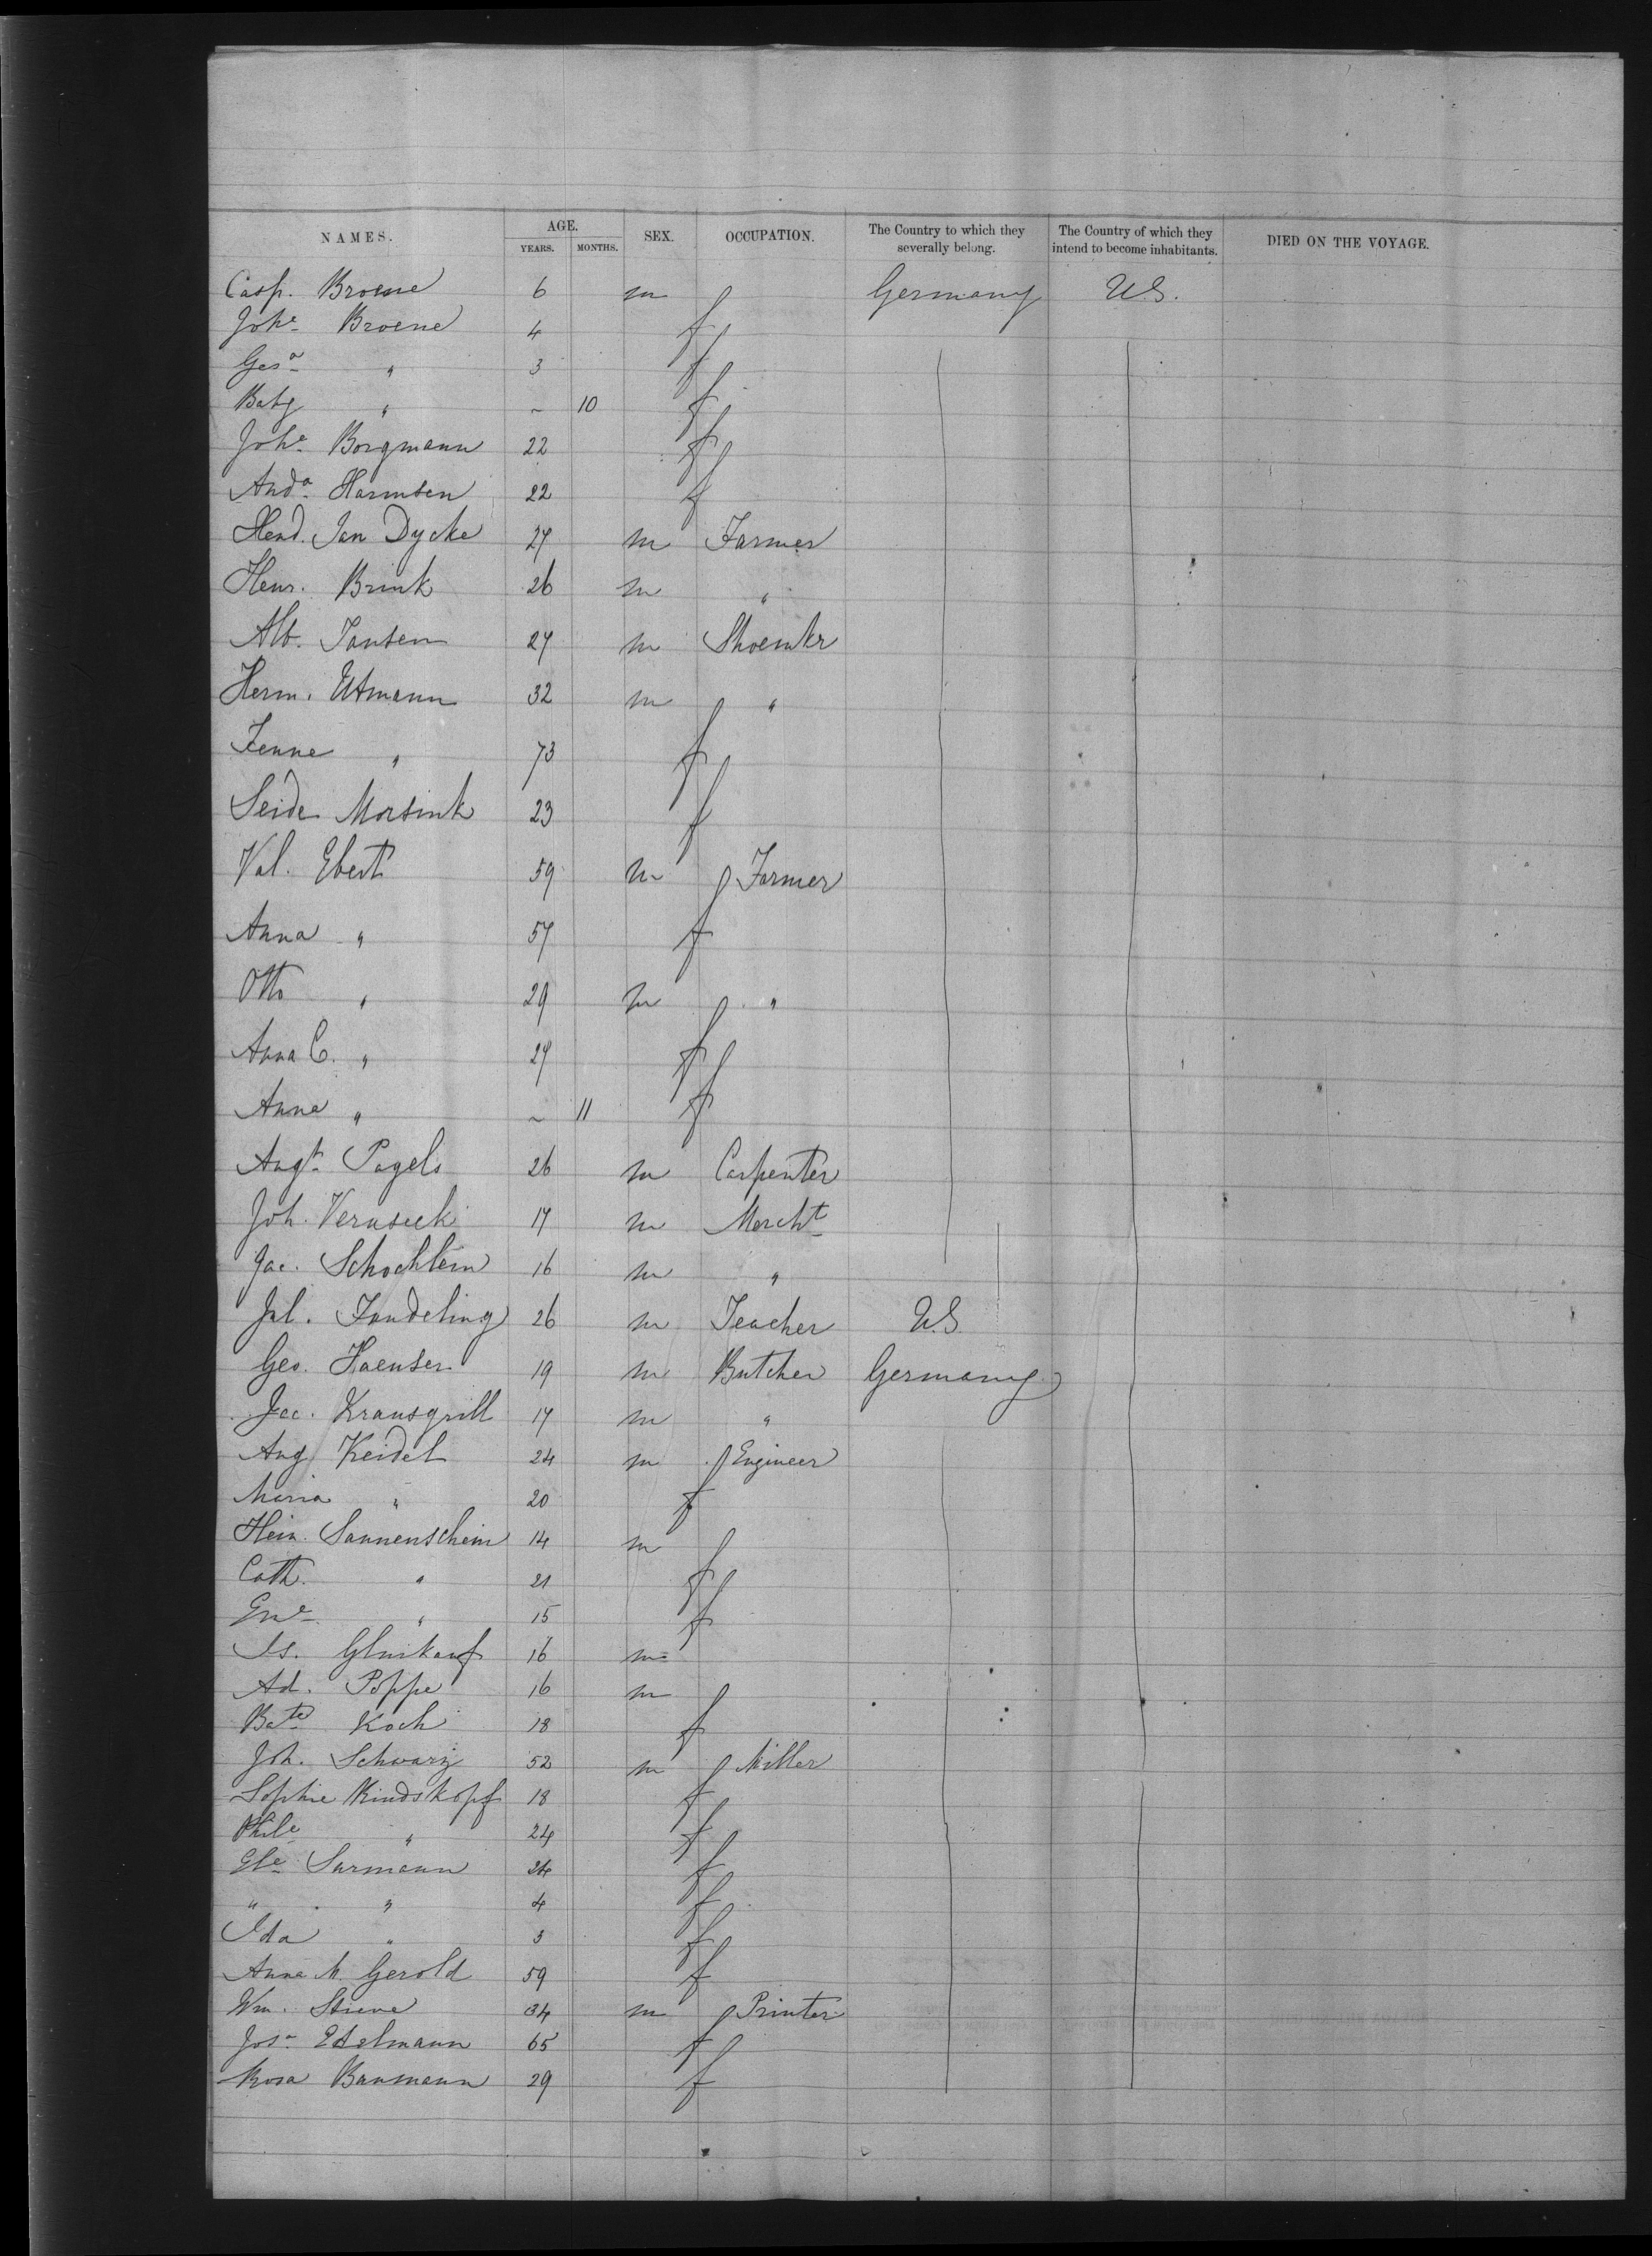 NAMES. AGE. YEARS. MONTHS. SEX. OCCUPATION. The Country to which they severally belong. The Country of which they intend to become inhabitants. DIED ON THE VOYAGE.
Casp. Broene 6 m Germany U.S.
Johe Broene 4 f
Gesa " 3 f
Baby " ~ 10 f
Johe Borgmann 22 f
Anda Harmsen 22 f
Hend. Jan Dycke 27 m Farmer
Henr. Brink 26 m "
Alb. Jansen 27 m Shoemkr
Herm. Utmann 32 m "
Fenne " 73 f
Seide Morsink 23 f
Val. Ebert 59 m Farmer
Anna " 57 f
Otto " 29 m "
Anna C. " 27 f
Anna " ~ 11 f
Augt Pagels 26 m Carpenter
Joh. Veruseck 17 m Mercht
Jac. Schochlein 16 m "
Jul. Fandeling 26 m Teacher U.S.
Geo. Haenser 19 m Butcher Germany
Jac. Kransgrill 17 m "
Aug Keidel 24 m Engineer
Maria " 20 f
Hein. Sannenschein 14 m
Cath. " 21 f
Erne " 15 f
Is. Gluskauf 16 m
Ad. Poppe 16 m
Koch 18 f
Joh. Schwarz 52 m Miller
Sophie Kindskopf 18 f
Phile " 24 f
Ele Surmann 24 f
" " 4 f
Ida " 3 f
Anna M. Gerold 59 f
Wm. Stieve 34 m Printer
Josa Edelmann 65 f
Rosa Baumann 29 f